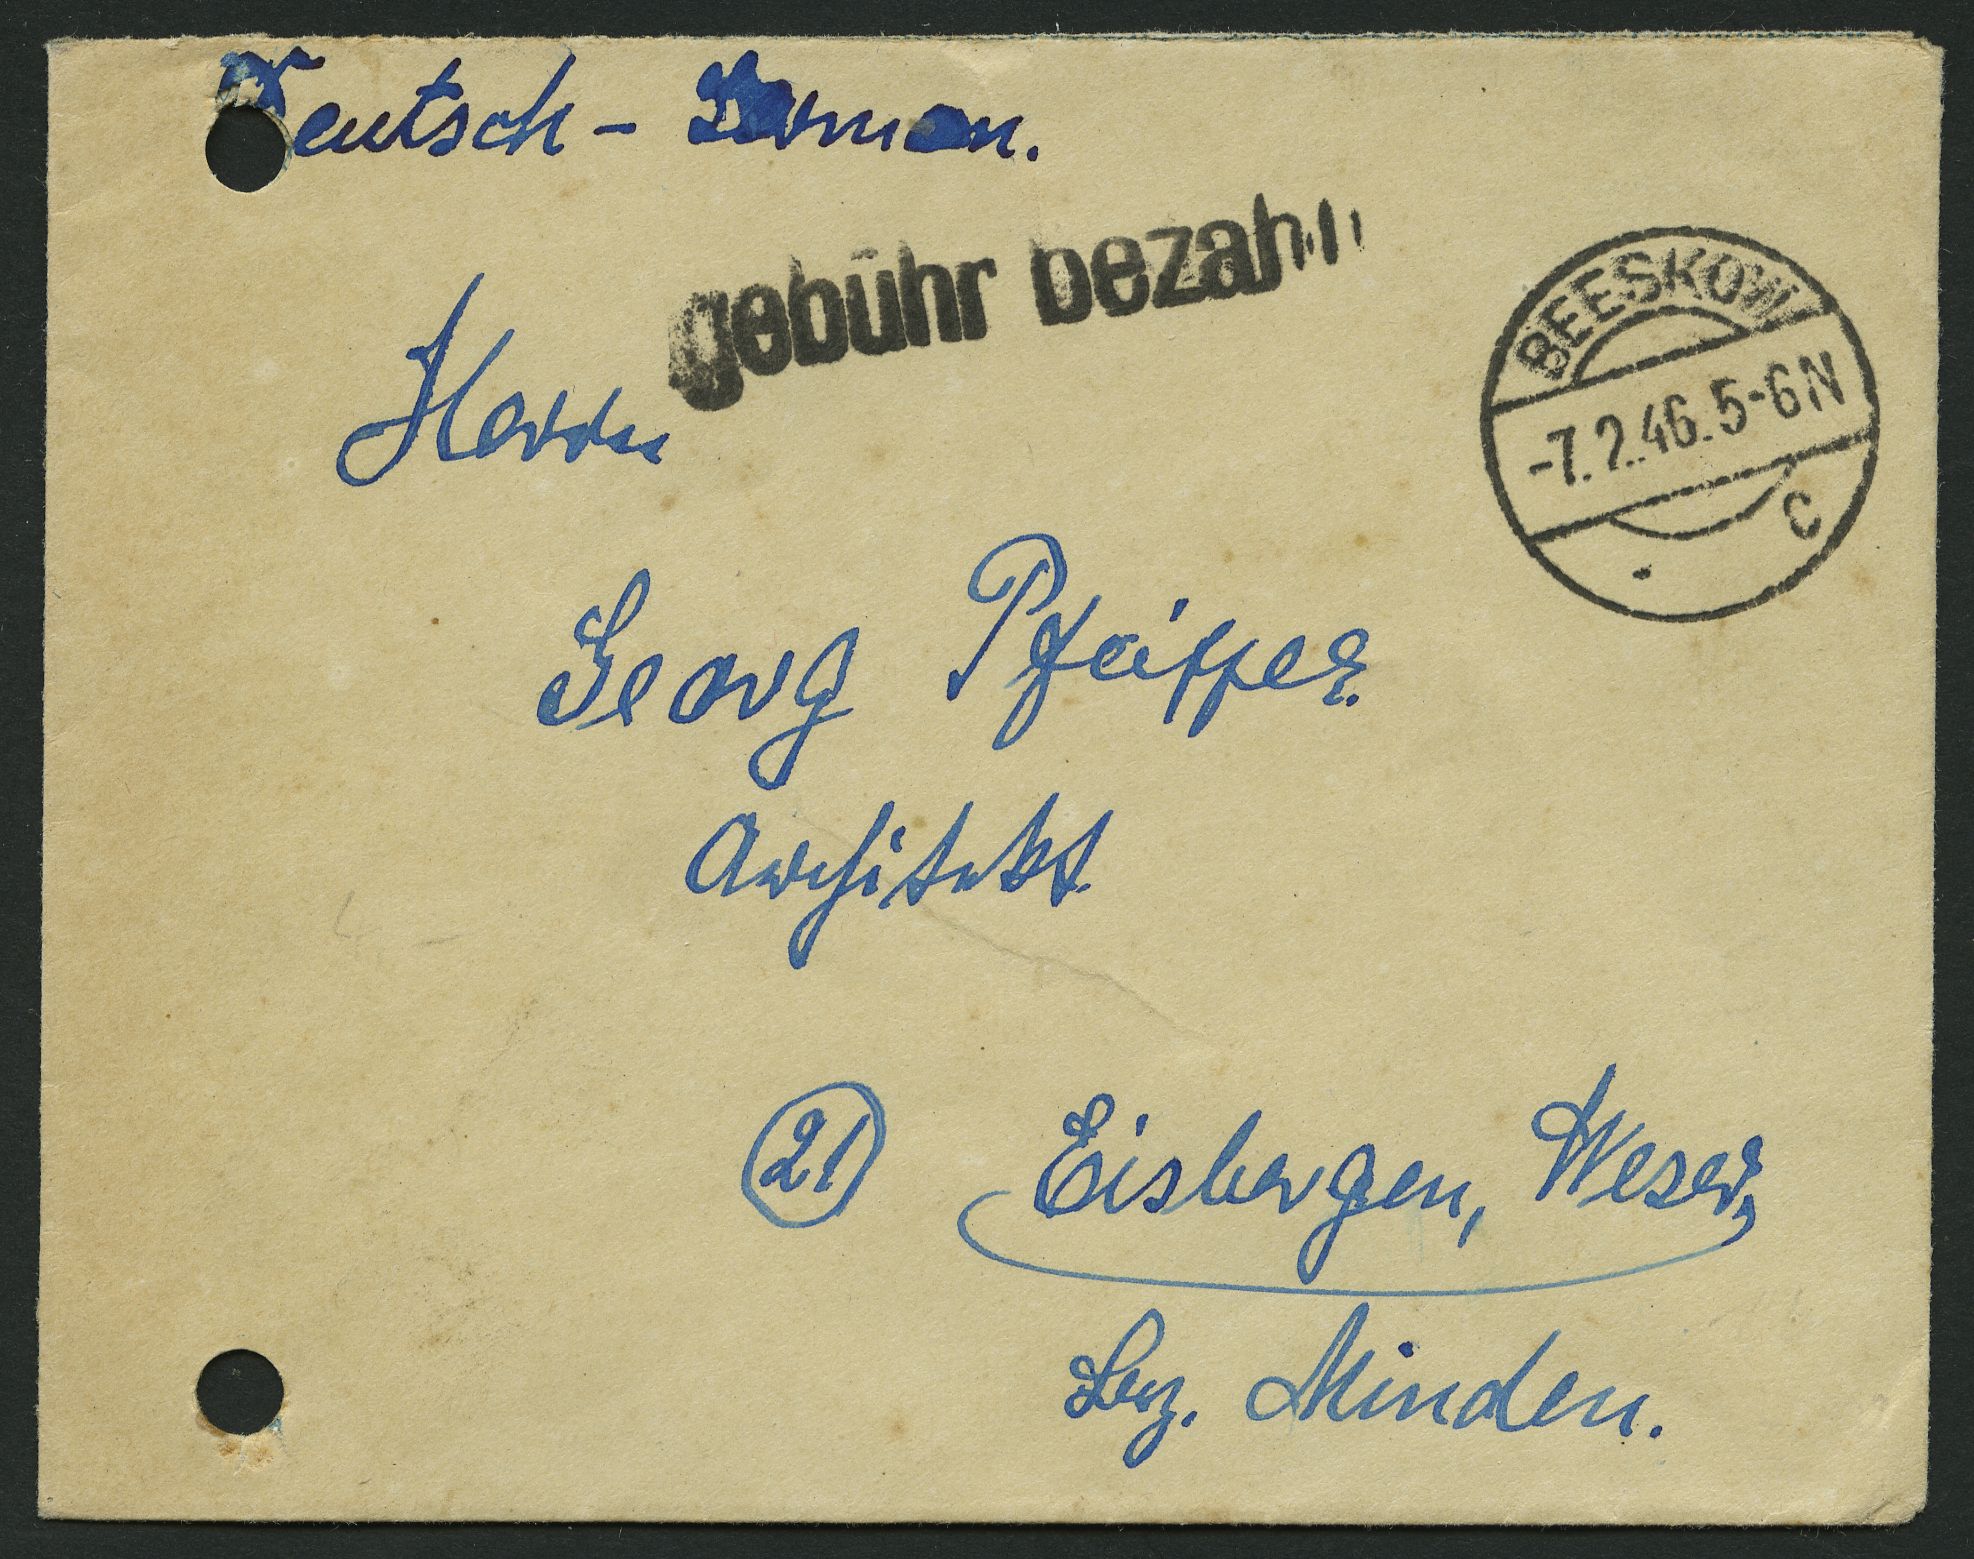 Deutsch - German.
gebühr bezahlt
BEESKOW
-7.2.46.5-6N
c
Herrn
Georg Pfeiffer
Architekt
21 Eisbergen, Weser,
Bez. Minden.